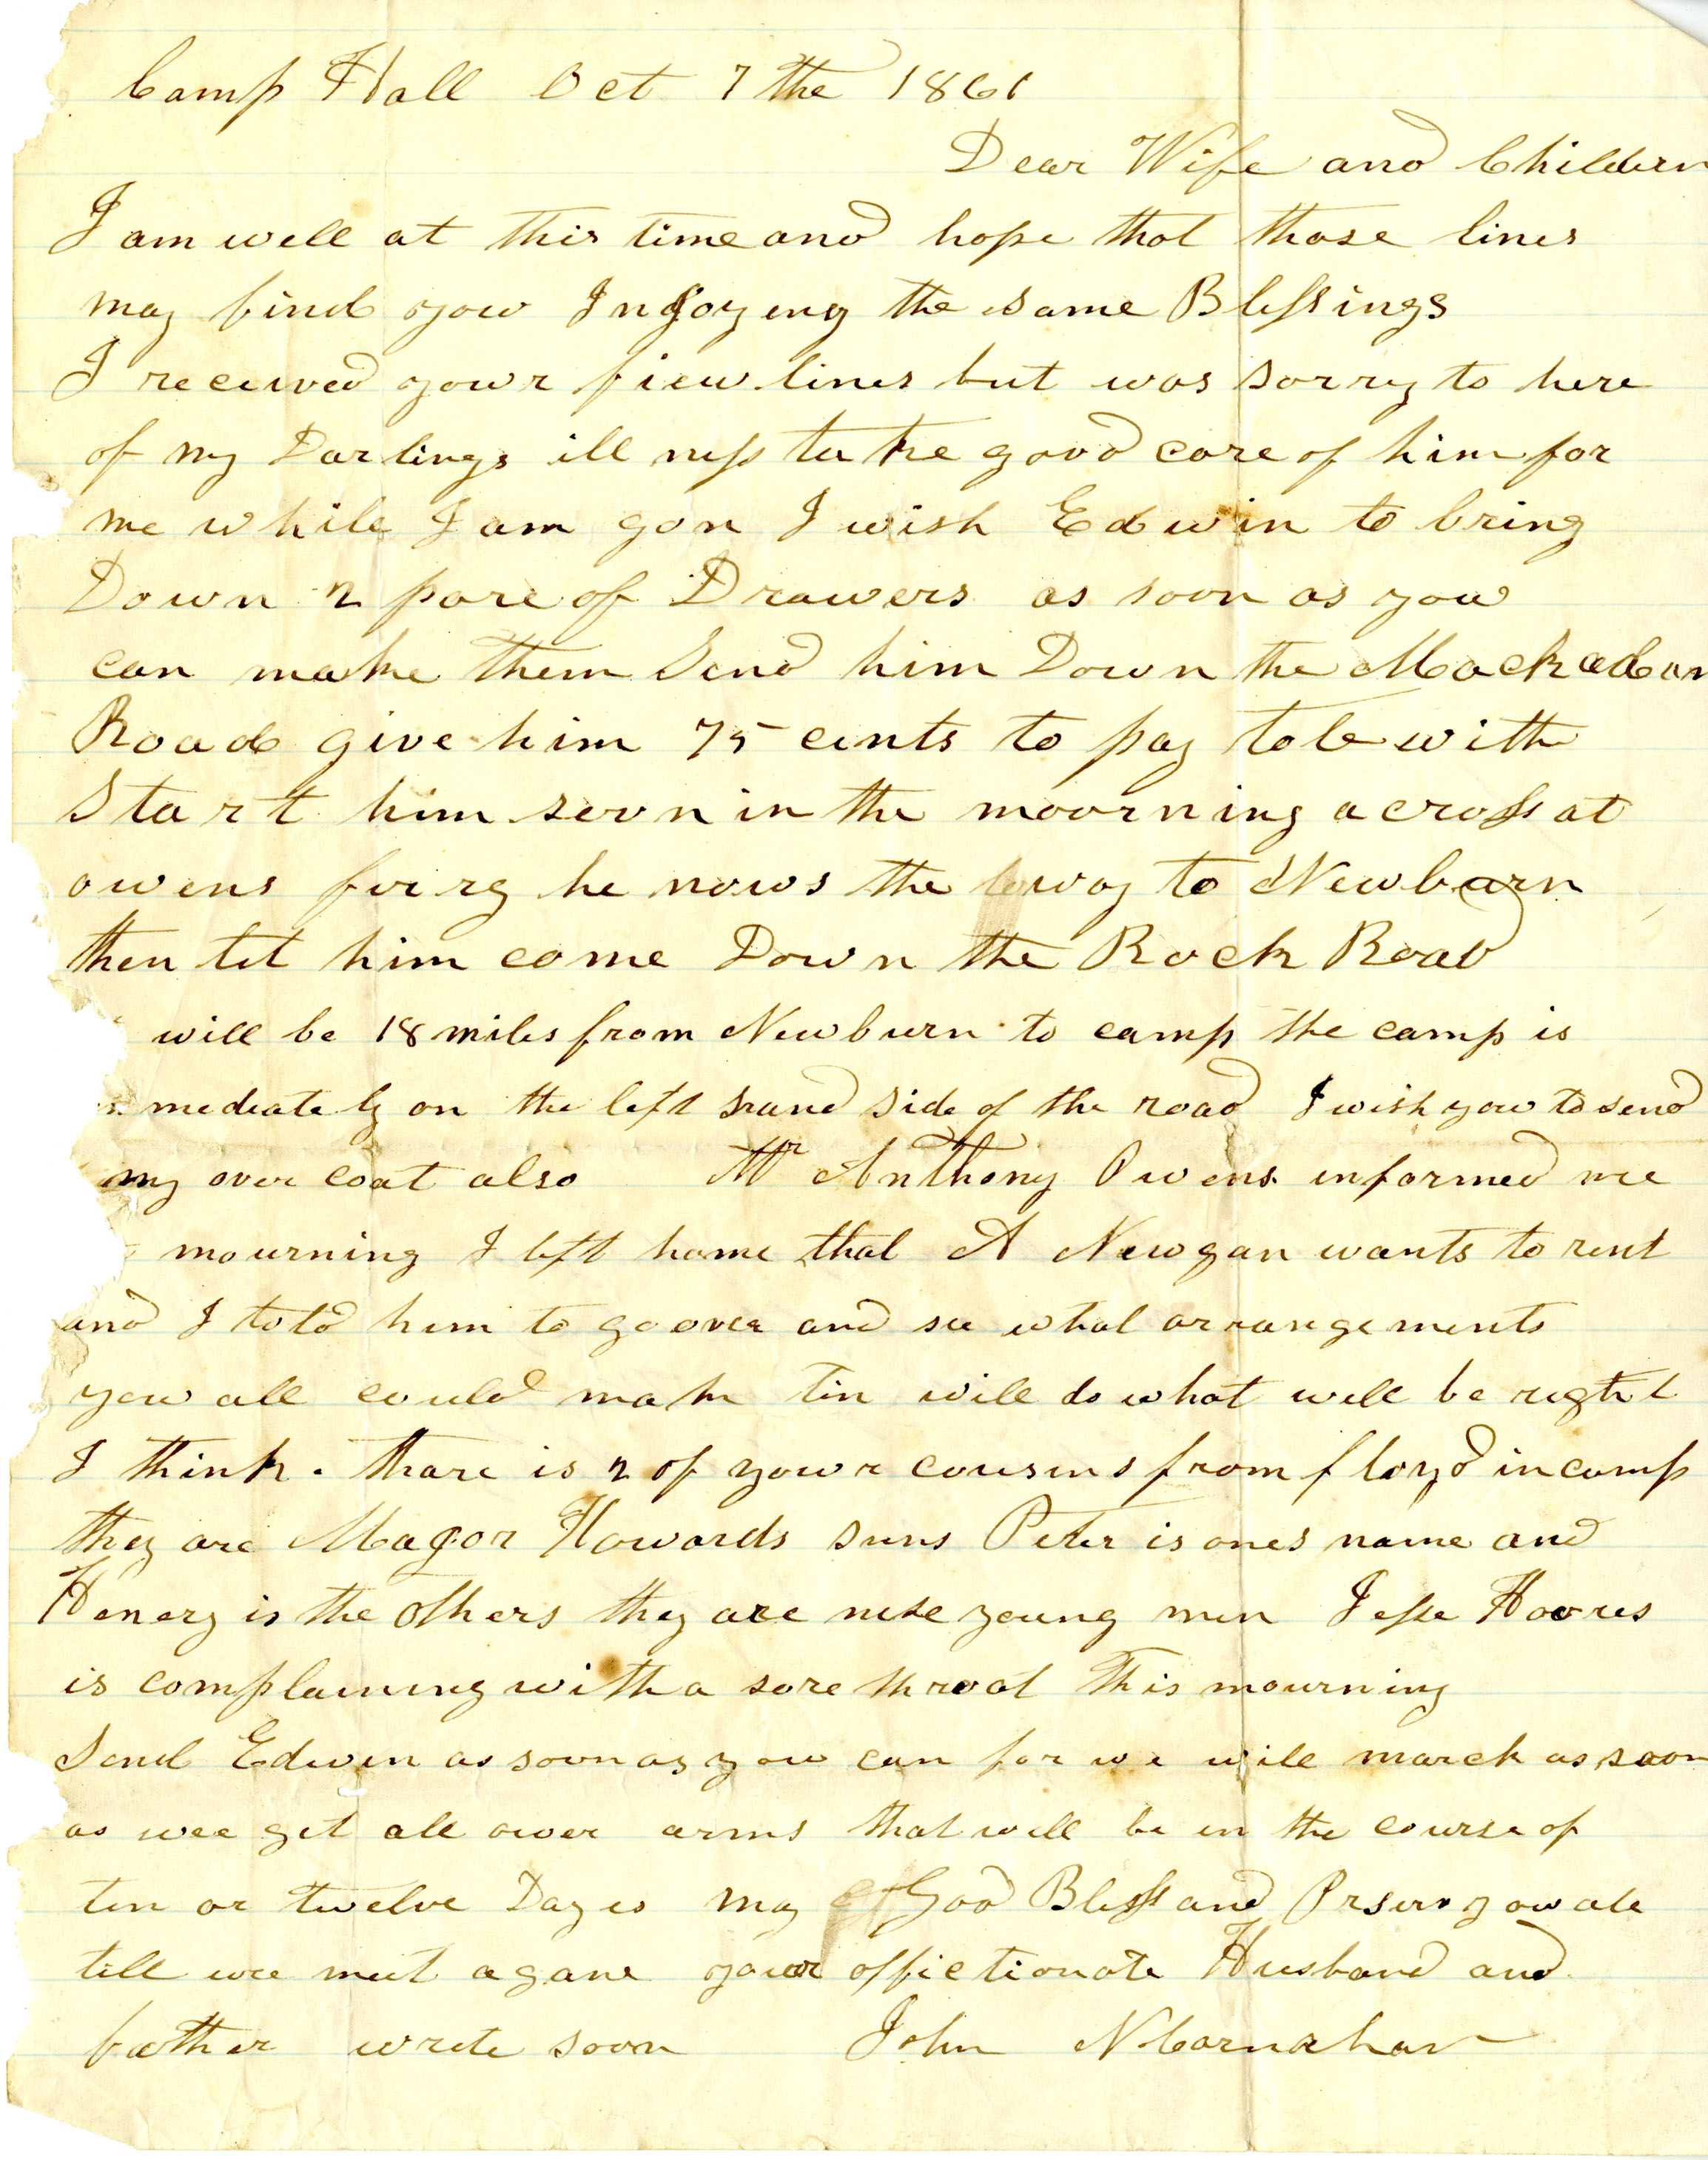 Camp Hall Oct 7the 1861
Dear Wife and Childern
I am well at this time and hope that those lines
may find yow Injoyeng the same Blessings
I received yowr fiew lines but was sorry to here
of my Darlings ill ness take good care of him for
me while I am gon I wish Edwin to bring
Down 2 pare of Drawers as soon as yow
can make them Send him Down the Mackadam
Road give him 75 cents to pay tole with
Start him soon in the moorning across at
owens ferry he nows the way to Newburn
then let him come Down the Rock Road
will be 18 miles from Newburn to camp the camp is
mediately on the left hand side of the road I wish yow to send
my over coat also Mr Anthony Owens informed me
mourning I left home that A Newgan wants to rent
and I told him to go over and see what arrangements
yow all could make Tin will do what will be right
I think. thare is 2 of yowr cousins from floyd in camp
they are Magor Howards suns Peter is ones name and
Henery is the others they are nise young men Jesse Hoores
is complaining with a sore throat This mourning
Send Edwin as soon as yow can for we will march as soon
as wee get all ower arms that will be in the course of
ten or twelve Dayes may God Bless and Prserv yow all
till wee meet agane yowr affictionate Husband and
father wrete soon John N Carnahan